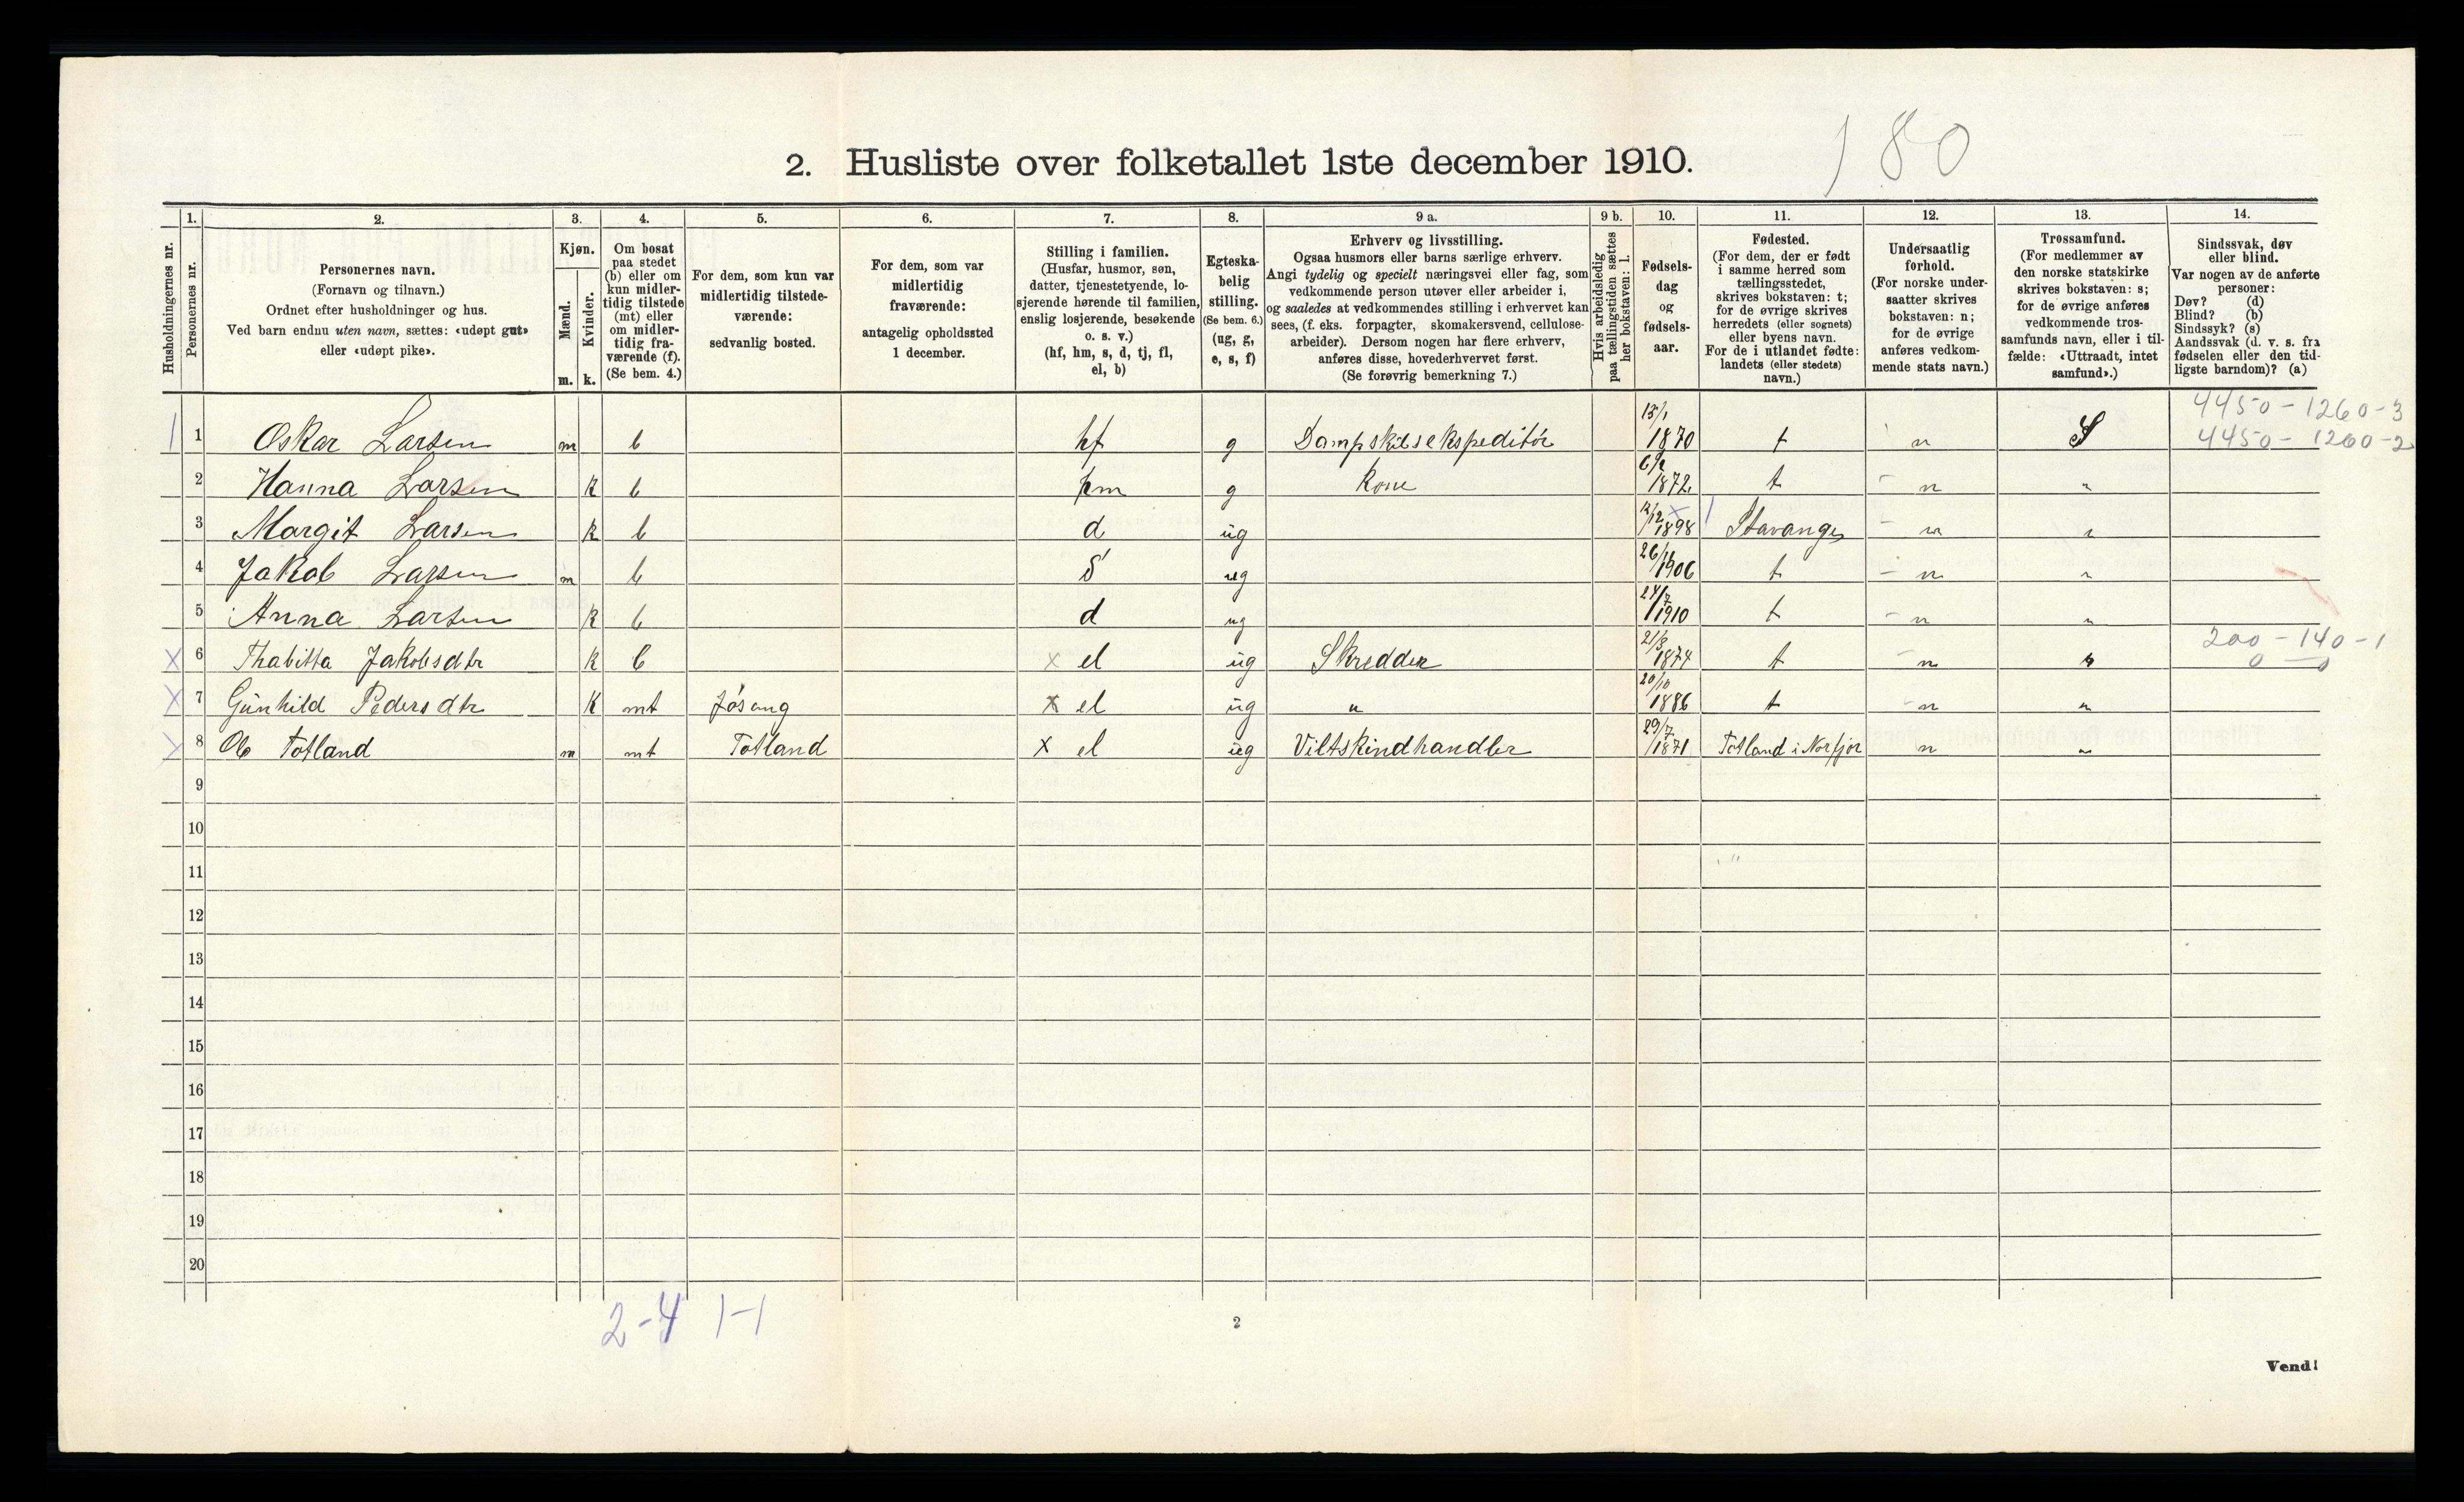 180
2. Husliste over folketallet 1ste december 1910.
Husholdningernes nr.
1. Personernes nr.
2. Personernes navn.
(Fornavn og tilnavn.)
Ordnet efter husholdninger og hus.
Ved barn endnu uten navn, sættes: «udøpt gut»
eller «udøpt pike».
3. Kjøn.
Mænd. m.
Kvinder. k.
4. Om bosat
paa stedet
(b) eller om
kun midler-
tidig tilstede
(mt) eller
om midler-
tidig fra-
værende (f).
(Se bem. 4.)
5. For dem, som kun var
midlertidig tilstede-
værende:
sedvanlig bosted.
6. For dem, som var
midlertidig
fraværende:
antagelig opholdssted
1 december.
7. Stilling i familien.
(Husfar, husmor, søn,
datter, tjenestetyende, lo-
sjerende hørende til familien,
enslig losjerende, besøkende
o. s. v.)
(hf, hm, s, d, tj, fl,
el, b)
8. Egteska-
belig
stilling.
(Se bem. 6.)
(ug, g,
e, s, f)
9 a. Erhverv og livsstilling.
Ogsaa husmors eller barns særlige erhverv.
Angi tydelig og specielt næringsvei eller fag, som
vedkommende person utøver eller arbeider i,
og saaledes at vedkommendes stilling i erhvervet kan
sees, (f. eks. forpagter, skomakersvend, cellulose-
arbeider). Dersom nogen har flere erhverv,
anføres disse, hovederhvervet først.
(Se forøvrig bemerkning 7.)
9 b. Hvis arbeidsledig
paa tællingstiden sættes
her bokstaven: l.
10. Fødsels-
dag
og
fødsels-
aar.
11. Fødested.
(For dem, der er født
i samme herred som
tællingsstedet,
skrives bokstaven: t;
for de øvrige skrives
herredets (eller sognets)
eller byens navn.
For de i utlandet fødte:
landets (eller stedets)
navn.)
12. Undersaatlig
forhold.
(For norske under-
saatter skrives
bokstaven: n;
for de øvrige
anføres vedkom-
mende stats navn.)
13. Trossamfund.
(For medlemmer av
den norske statskirke
skrives bokstaven: s;
for de øvrige anføres
vedkommende tros-
samfunds navn, eller i til-
fælde: «Uttraadt, intet
samfund».)
14. Sindssvak, døv
eller blind.
Var nogen av de anførte
personer:
Døv? (d)
Blind? (b)
Sindssyk? (s)
Aandssvak (d. v. s. fra
fødselen eller den tid-
ligste barndom)? (a)
4450 - 1260-3
1 1 Oskar Larsen m b hf g Dampskibsekspeditör 13/1 1870 t n S 4450 - 1260-2
2 Hanna Larsen k b hm g Kone 1872 t n "
3 Margit Larsen k b d ug 12/12 1898 Stavanger n "
4 Jakob Larsen m b s ug 1906 t n "
5 Anna Larsen k b d ug 24/7 1910 t n "
200 - 140 - 1
x 6 Thabitta Jakobsdtr k b x el ug Skredder 21/3 1874 t n " 0 - 0
x 7 Gunhild Pedersdtr k mt Jösang x el ug " 20/10 1886 t n "
x 8 Ole Totland m mt Totland x el ug Viltskindhandler 29/7 1871 Totland i Norfjor n "
9
10
11
12
13
14
15
16
17
18
19
20
2-4 1-1
2
Vend!